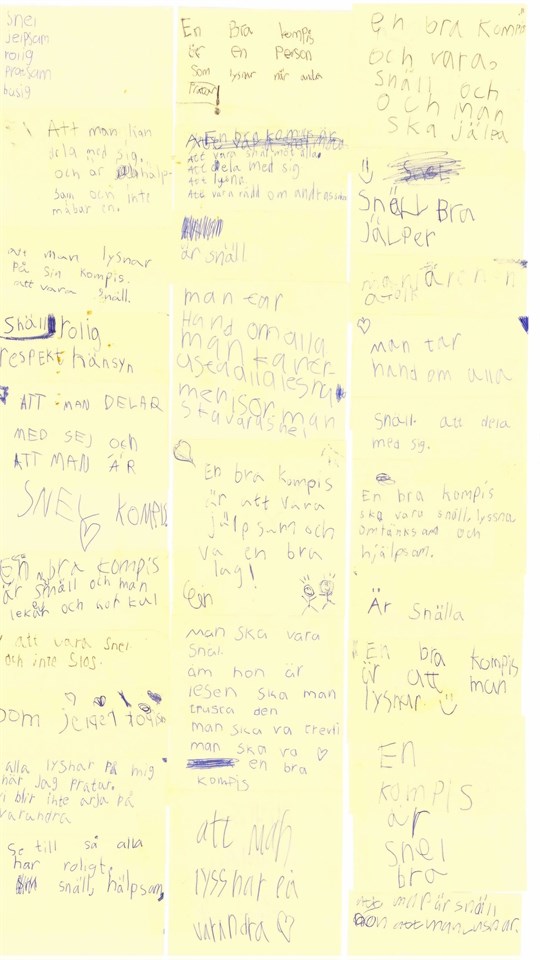 snel
jelpsam
rolig
pratsam
busig
Att man kan
dela med sig.
och är hjälp-
sam och inte
måbar en.
att man lysnar
på sin kompis.
att vara snäll.
snäll rolig
respekt hänsyn
ATT MAN DELAR
MED SEJ OCH
ATT MAN ÄR
SNEL KOMPIS
En bra kompis
är snäll och man
leker och har kul
att vara snel
och inte slos.
alla lyshar på mig
när jag pratar.
vi blir inte arja på
varandra
Se till så alla
har roligt.
snäll, hälpsam
En Bra kompis
är en Person
som lysnar när andra
Pratar!
En bra kompis är
Att vara snäl mot alla.
Att dela med sig
Att lysna
Att vara rädd om andras
är snäll
man tar
Hand om alla
man
menisor man
ska vara snel
En bra kompis
är att vara
jälpsam och
va en bra
lag!
man ska vara
snäl.
äm hon är
lesen ska man
trusta den
man ska va trevli
man ska va
en bra
kompis
att man
lyssnar på
varandra
En bra kompis
och vara
snäll och
och man
ska jälpa
SNÄLL BRA
JÄLPER
man är en
man tar
hand om alla
Snäll. att dela
med sig.
En bra kompis
ska vara snäll, lyssna
omtänksam och
hjälpsam.
Är snälla
En bra kompis
är att man
lysnar
En
kompis
är
snel
bra
att man är snäll
och att man lysnar.